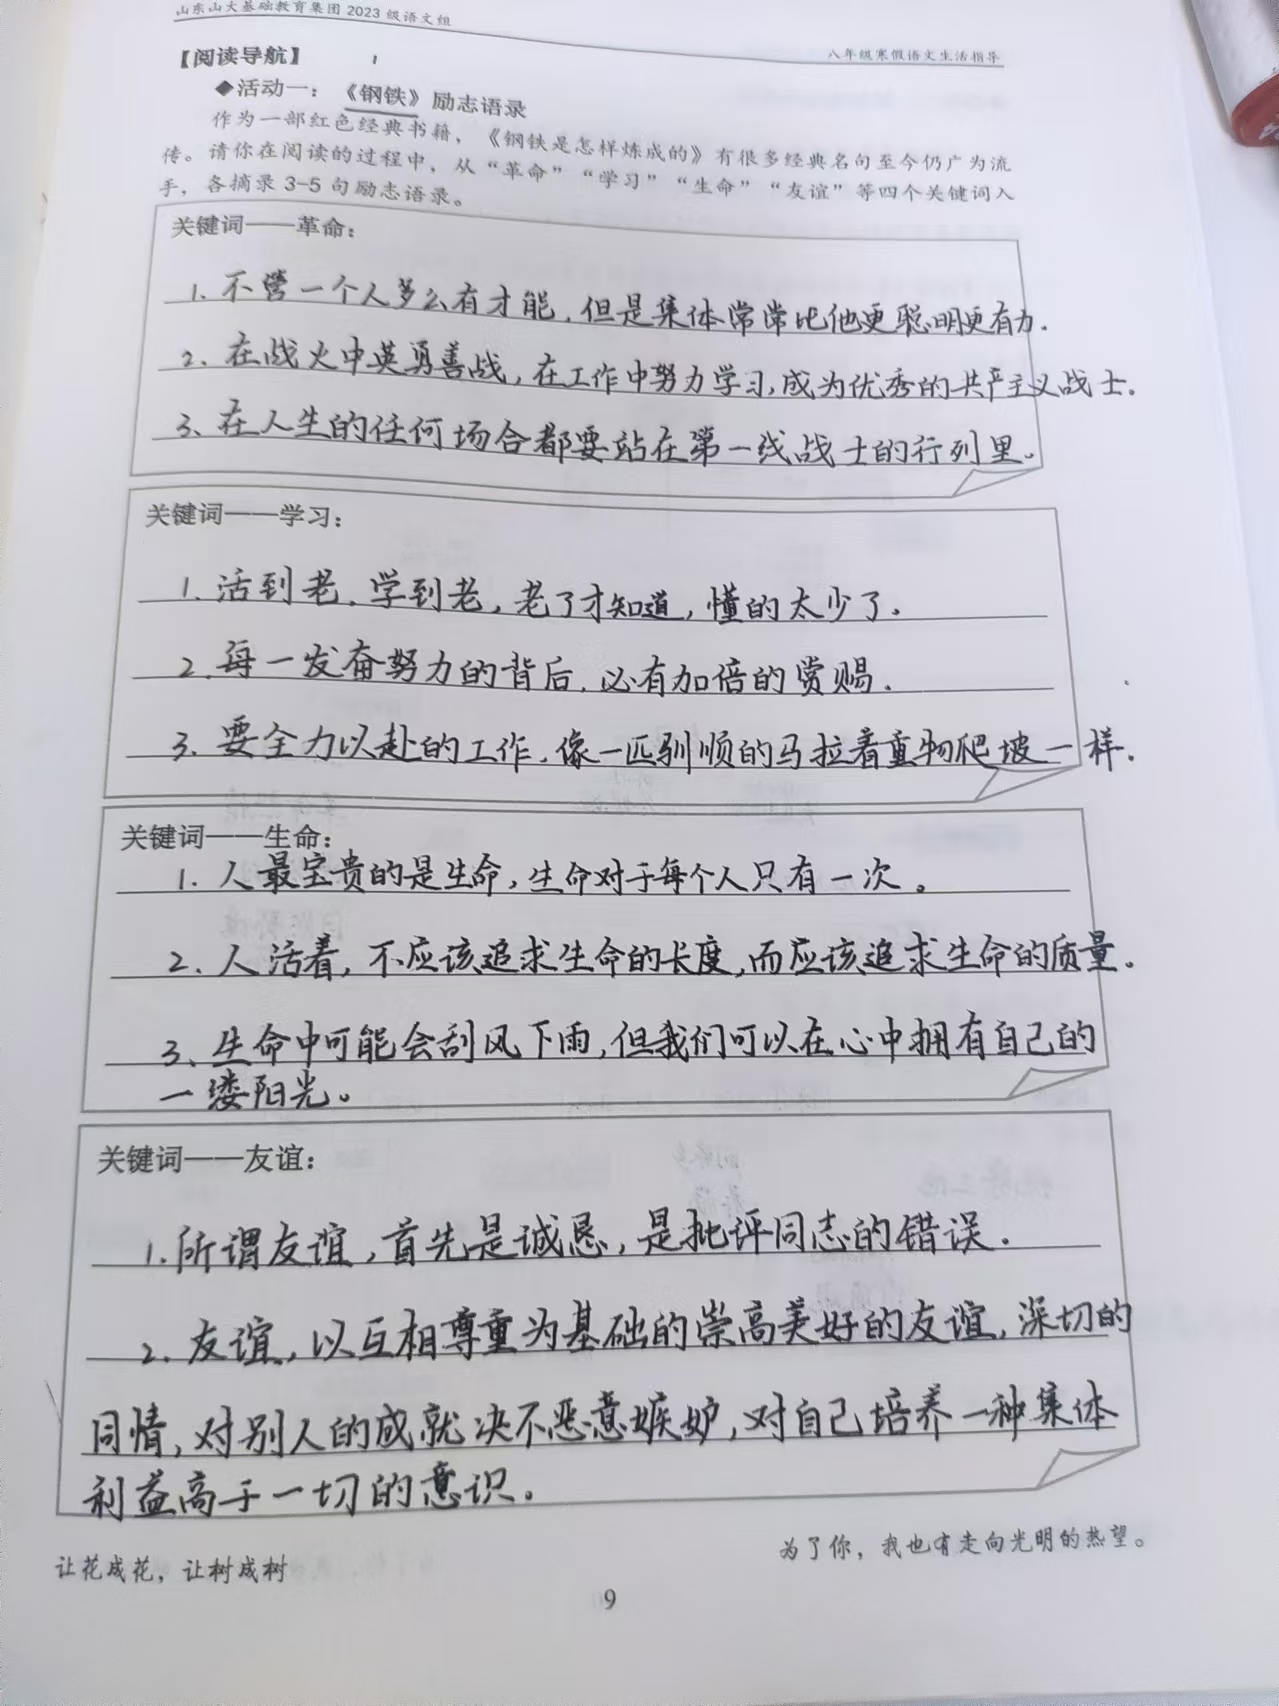 山东山大基础教育集团 2023 级语文组
八年级寒假语文生活指导
【阅读导航】
◆活动一：《钢铁》励志语录
作为一部红色经典书籍，《钢铁是怎样炼成的》有很多经典名句至今仍广为流
传。请你在阅读的过程中，从“革命”“学习”“生命”“友谊”等四个关键词入
手，各摘录 3-5 句励志语录。
关键词——革命：
1. 不管一个人多么有才能，但是集体常常比他更聪明更有力.
2. 在战火中英勇善战，在工作中努力学习，成为优秀的共产主义战士.
3. 在人生的任何场合都要站在第一线战士的行列里.
关键词——学习：
1. 活到老，学到老，老了才知道，懂的太少了.
2. 每一发奋努力的背后，必有加倍的赏赐.
3. 要全力以赴的工作，像一匹驯顺的马拉着重物爬坡一样.
关键词——生命：
1. 人最宝贵的是生命，生命对于每个人只有一次。
2. 人活着，不应该追求生命的长度，而应该追求生命的质量.
3. 生命中可能会刮风下雨，但我们可以在心中拥有自己的
一缕阳光。
关键词——友谊：
1. 所谓友谊，首先是诚恳，是批评同志的错误.
2. 友谊，以互相尊重为基础的崇高美好的友谊，深切的
同情，对别人的成就决不恶意嫉妒，对自己培养一种集体
利益高于一切的意识。
为了你，我也有走向光明的热望。
让花成花，让树成树
9